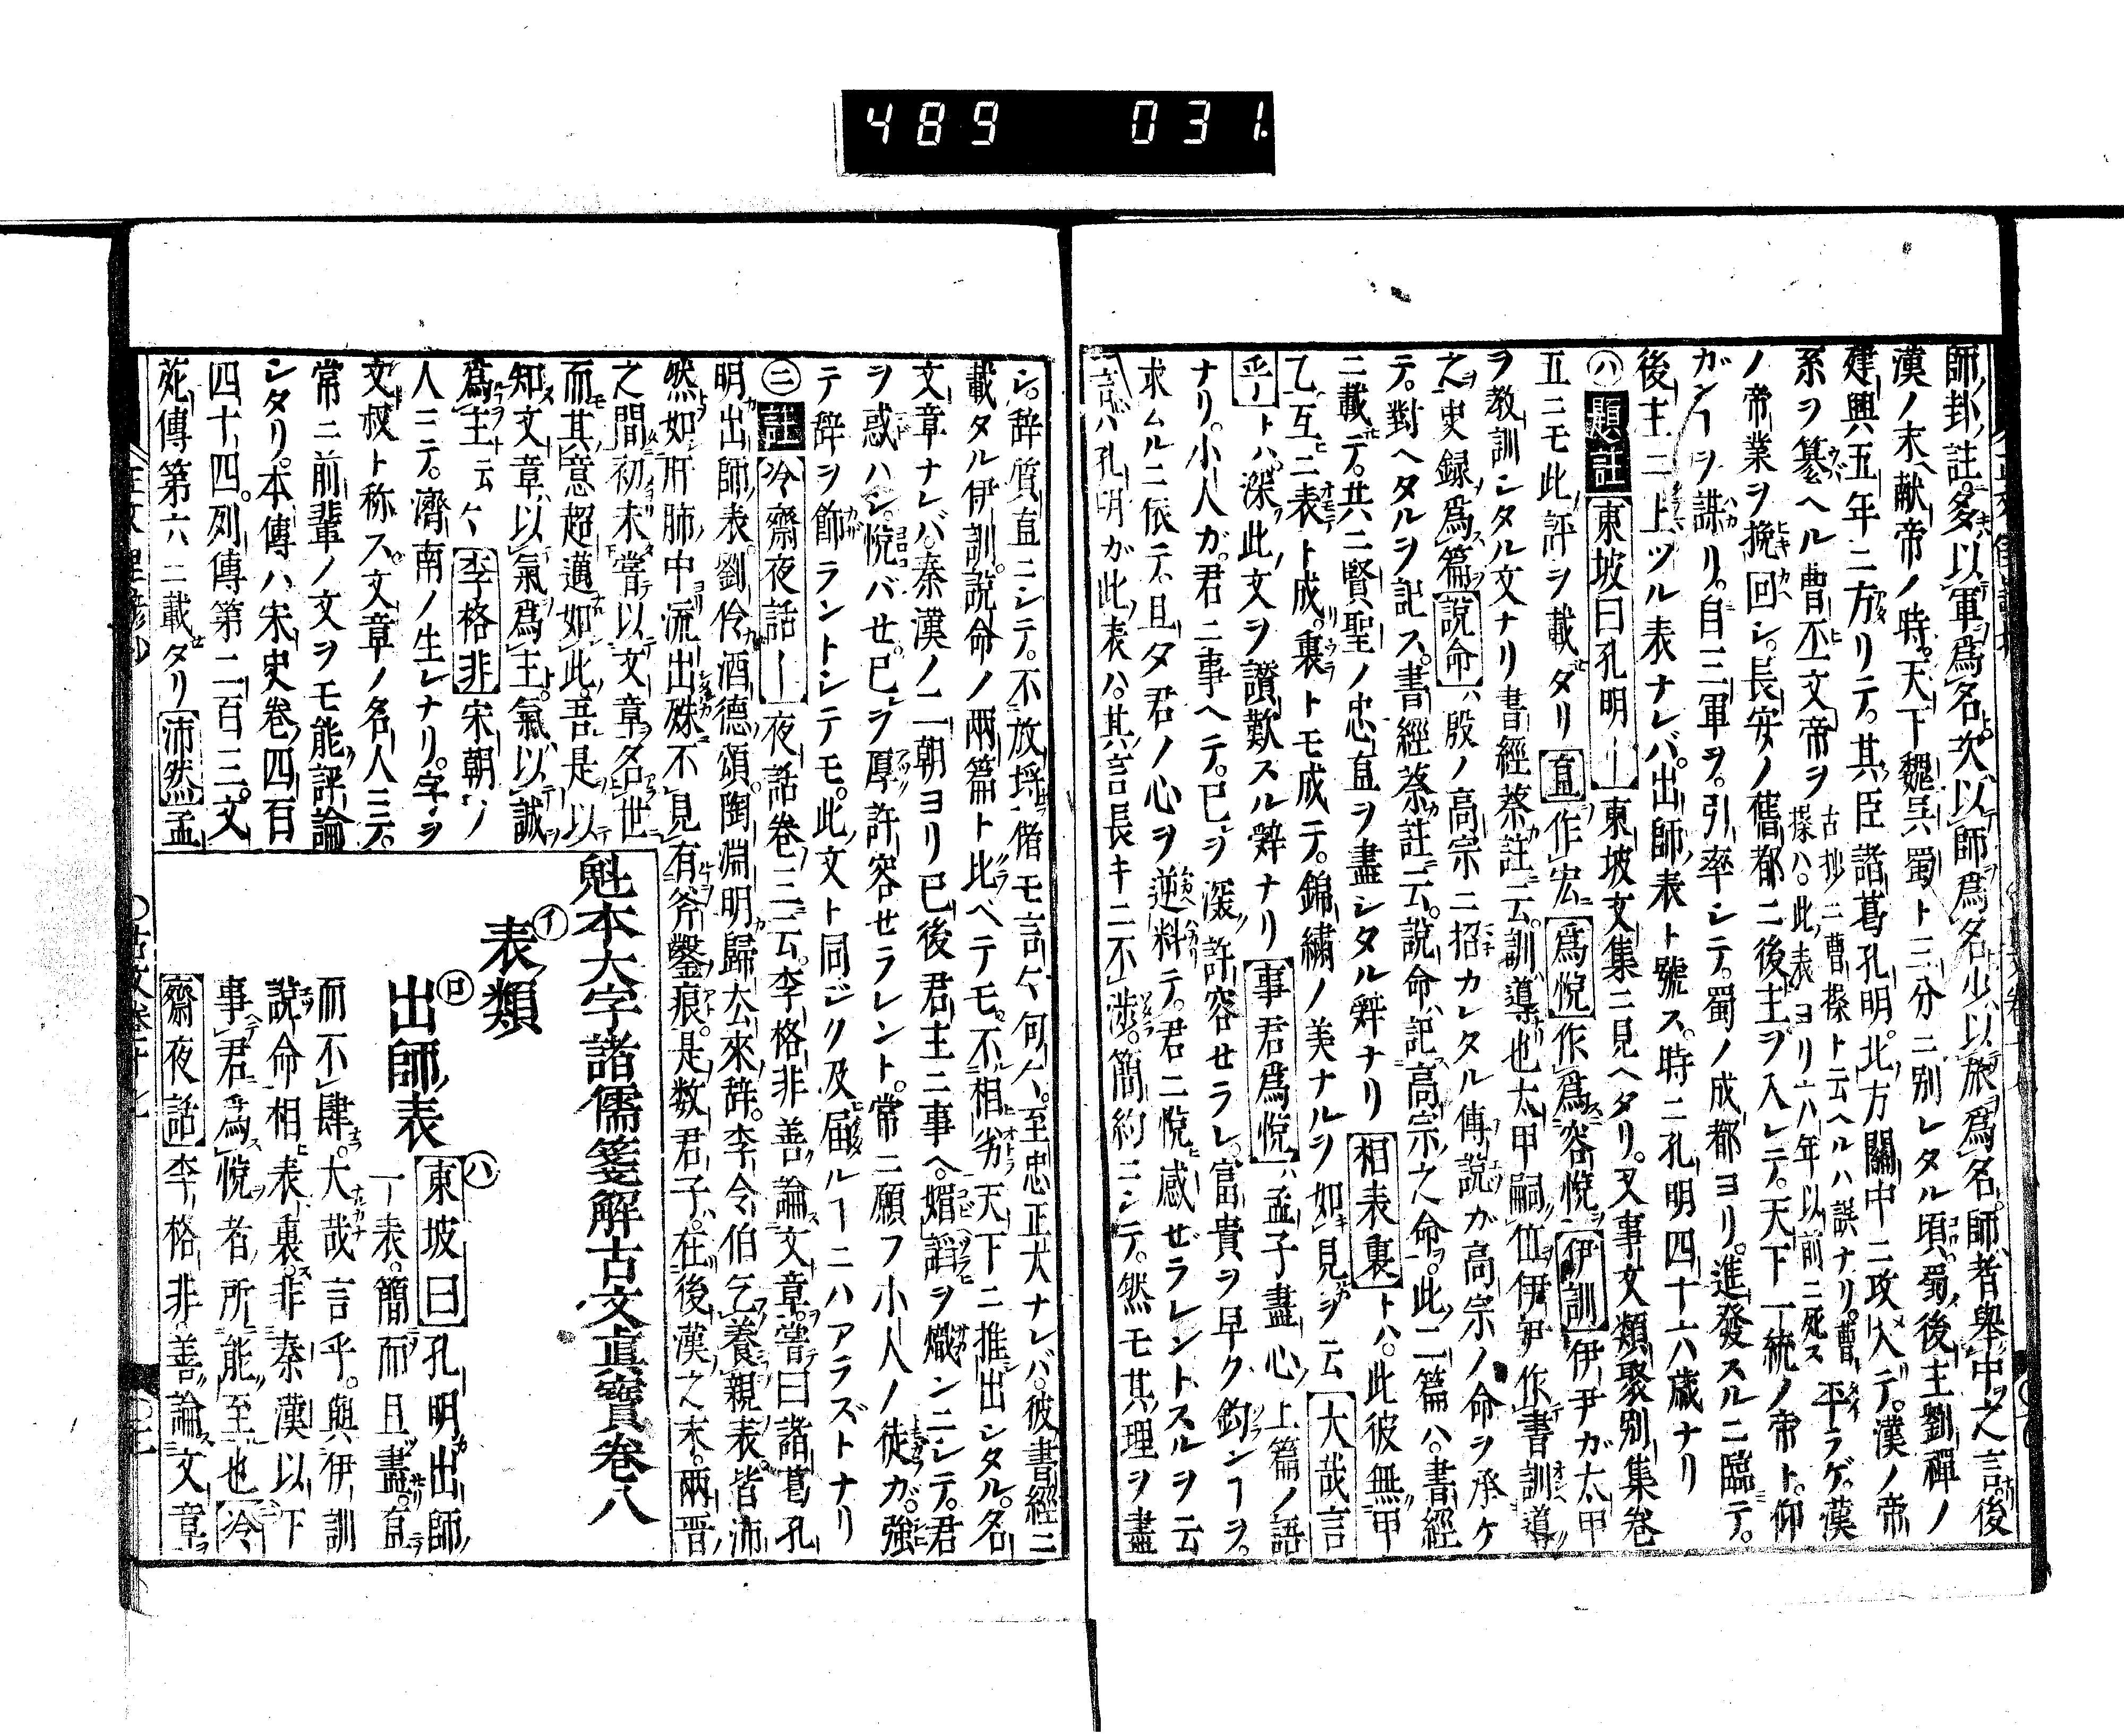 489 031
師ノ卦ノ註ニ多以軍爲名次以師爲名少以旅爲名師者擧中之言後
漢ノ末献帝ノ時天下魏呉蜀ト三分ニ別レタル頃蜀ノ後主劉禪ノ
建興五年ニ方リテ其臣諸葛孔明北方關中ニ攻入テ漢ノ帝
系ヲ簒ヘル曹丕文帝ヲ古抄ニ曹操ト云ヘルハ誤ナリ曹操ハ此表ヨリ六八年以前ニ死ス平ラゲ漢
ノ帝業ヲ挽回シ長安ノ舊都ニ後主ヲ入レテ天下一統ノ帝ト仰
ガンヿヲ謀リ自三軍ヲ引率シテ蜀ノ成都ヨリ進發スルニ臨テ
後主ニ上ツル表ナレバ出師ノ表ト號ス時ニ孔明四十六歳ナリ
㋩題註 東坡曰孔明｜東坡文集ニ見ヘタリ又事文類聚別集卷
五ニモ此評ヲ載タリ直作宏爲悦作爲容悦伊訓伊尹ガ太甲
ヲ教訓シタル文ナリ書經蔡註云訓導也太甲嗣位伊尹作書訓導
之史録爲篇說命ハ殷ノ高宗ニ招カレタル傳說ガ高宗ノ命ヲ承ケ
テ對ヘタルヲ記ス書經蔡註云說命記高宗之命此二篇ハ書經
ニ載テ共ニ賢聖ノ忠直ヲ盡シタル辭ナリ相表裏トハ此彼無甲
乙互ニ表ト成裏トモ成テ錦繡ノ美ナルヲ如見ヲ云大哉言
乎｜トハ深此文ヲ讃歎スル辭ナリ事君爲悦ハ孟子盡心上篇ノ語
ナリ小人ガ君ニ事ヘテ己ヲ深許容セラレ富貴ヲ早ク釣ンヿヲ
求ムルニ依テ旦夕君ノ心ヲ逆料テ君ニ悦感ゼラレントスルヲ云
言ハ孔明ガ此表ハ其言長キニ不渉簡約ニシテ然モ其理ヲ盡
シ辞質直ニシテ不放埓偖モ言々句々至忠正大ナレバ彼書經ニ
載タル伊訓說命ノ兩篇ト比ベテモ不相劣天下ニ推出シタル名
文章ナレバ秦漢ノ一朝ヨリ已後君主ニ事ヘ媚謟ヲ熾ンニシテ君
ヲ惑ハシ悦バせ己ヲ厚許容せラレント常ニ願フ小人ノ徒ガ強
テ辞ヲ飾ラントシテモ此文ト同ジク及届ルヿニハアラズトナリ
㊁註 冷齋夜話｜夜話卷三云李格非善論文章嘗曰諸葛孔
明出師表劉伶酒德頌陶淵明歸去來辞李令伯乞養親表皆沛
然如肝肺中流出殊不見有斧鑿痕是数君子在後漢之末兩晋
之間初未嘗以文章名世
而其意超邁如此吾是以
知文章以氣爲主氣以誠
爲主云々李格非宋朝ノ
人ニテ濟南ノ生レナリ字ヲ
文叔ト称ス文章ノ名人ニテ
常ニ前輩ノ文ヲモ能評論
シタリ本傳ハ宋史卷四百
四十四列傳第二百三文
苑傳第六ニ載タリ沛然孟
魁本大字諸儒箋解古文眞寶卷八
㋑表類
㋺出師表 ㋩東坡曰孔明出師
一表簡而且盡直
而不肆大哉言乎與伊訓
說命相表裏非秦漢以下
事君爲悦者所能至也冷
齋夜話李格非善論文章